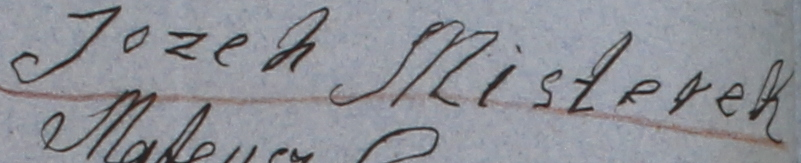 Jozeh Misterek
Mateusz